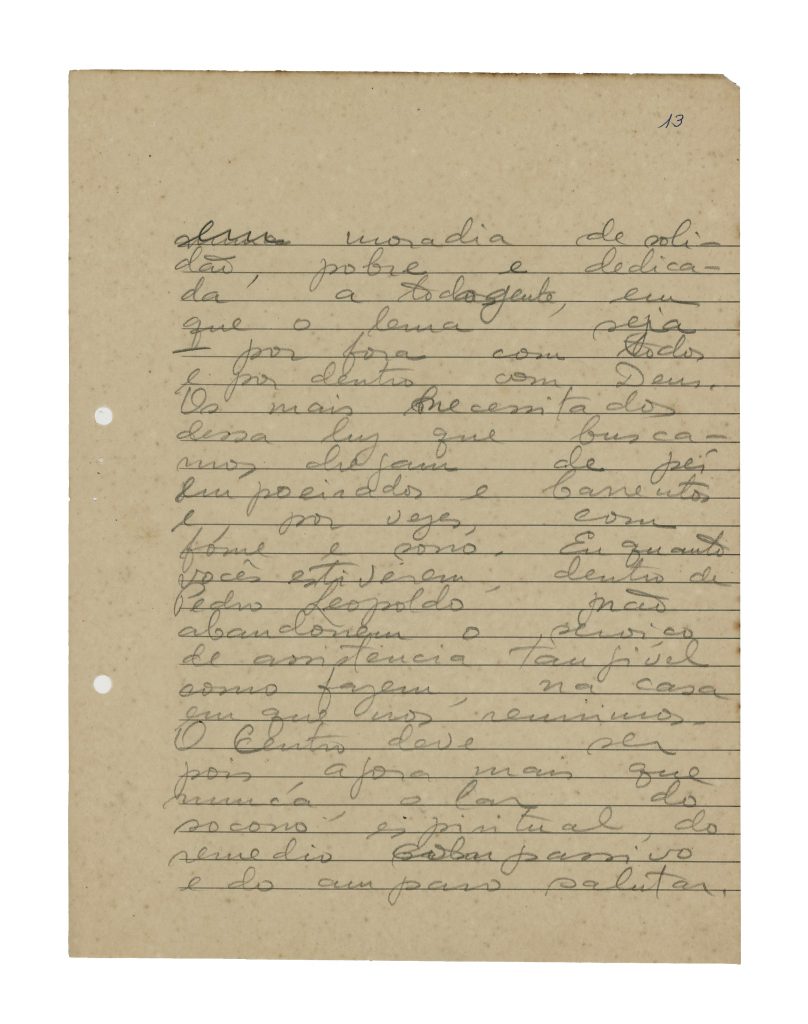 13
uma moradia de soli-
dão, pobre e dedica-
da a toda gente, em
que o lema seja
— por fora com todos
e por dentro com Deus.
Os mais necessitados
dessa luz que busca-
mos, chegam de pés
empoeirados e barrentos
e, por vezes, com
fome e sono. Enquanto
vocês estiverem dentro de
Pedro Leopoldo não
abandonem o serviço
de assistência tangível
como fazem, na casa
em que nos reunimos.
O Centro deve ser
pois agora mais que
nunca o lar do
socorro espiritual, do
remedio compassivo
e do amparo salutar.